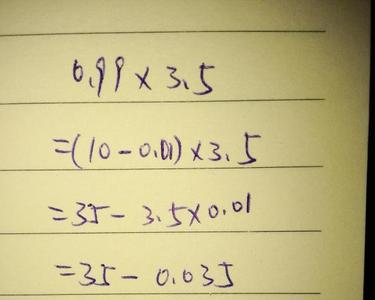 0.99×3.5
=(10-0.01)×3.5
=35-3.5×0.01
=35-0.035